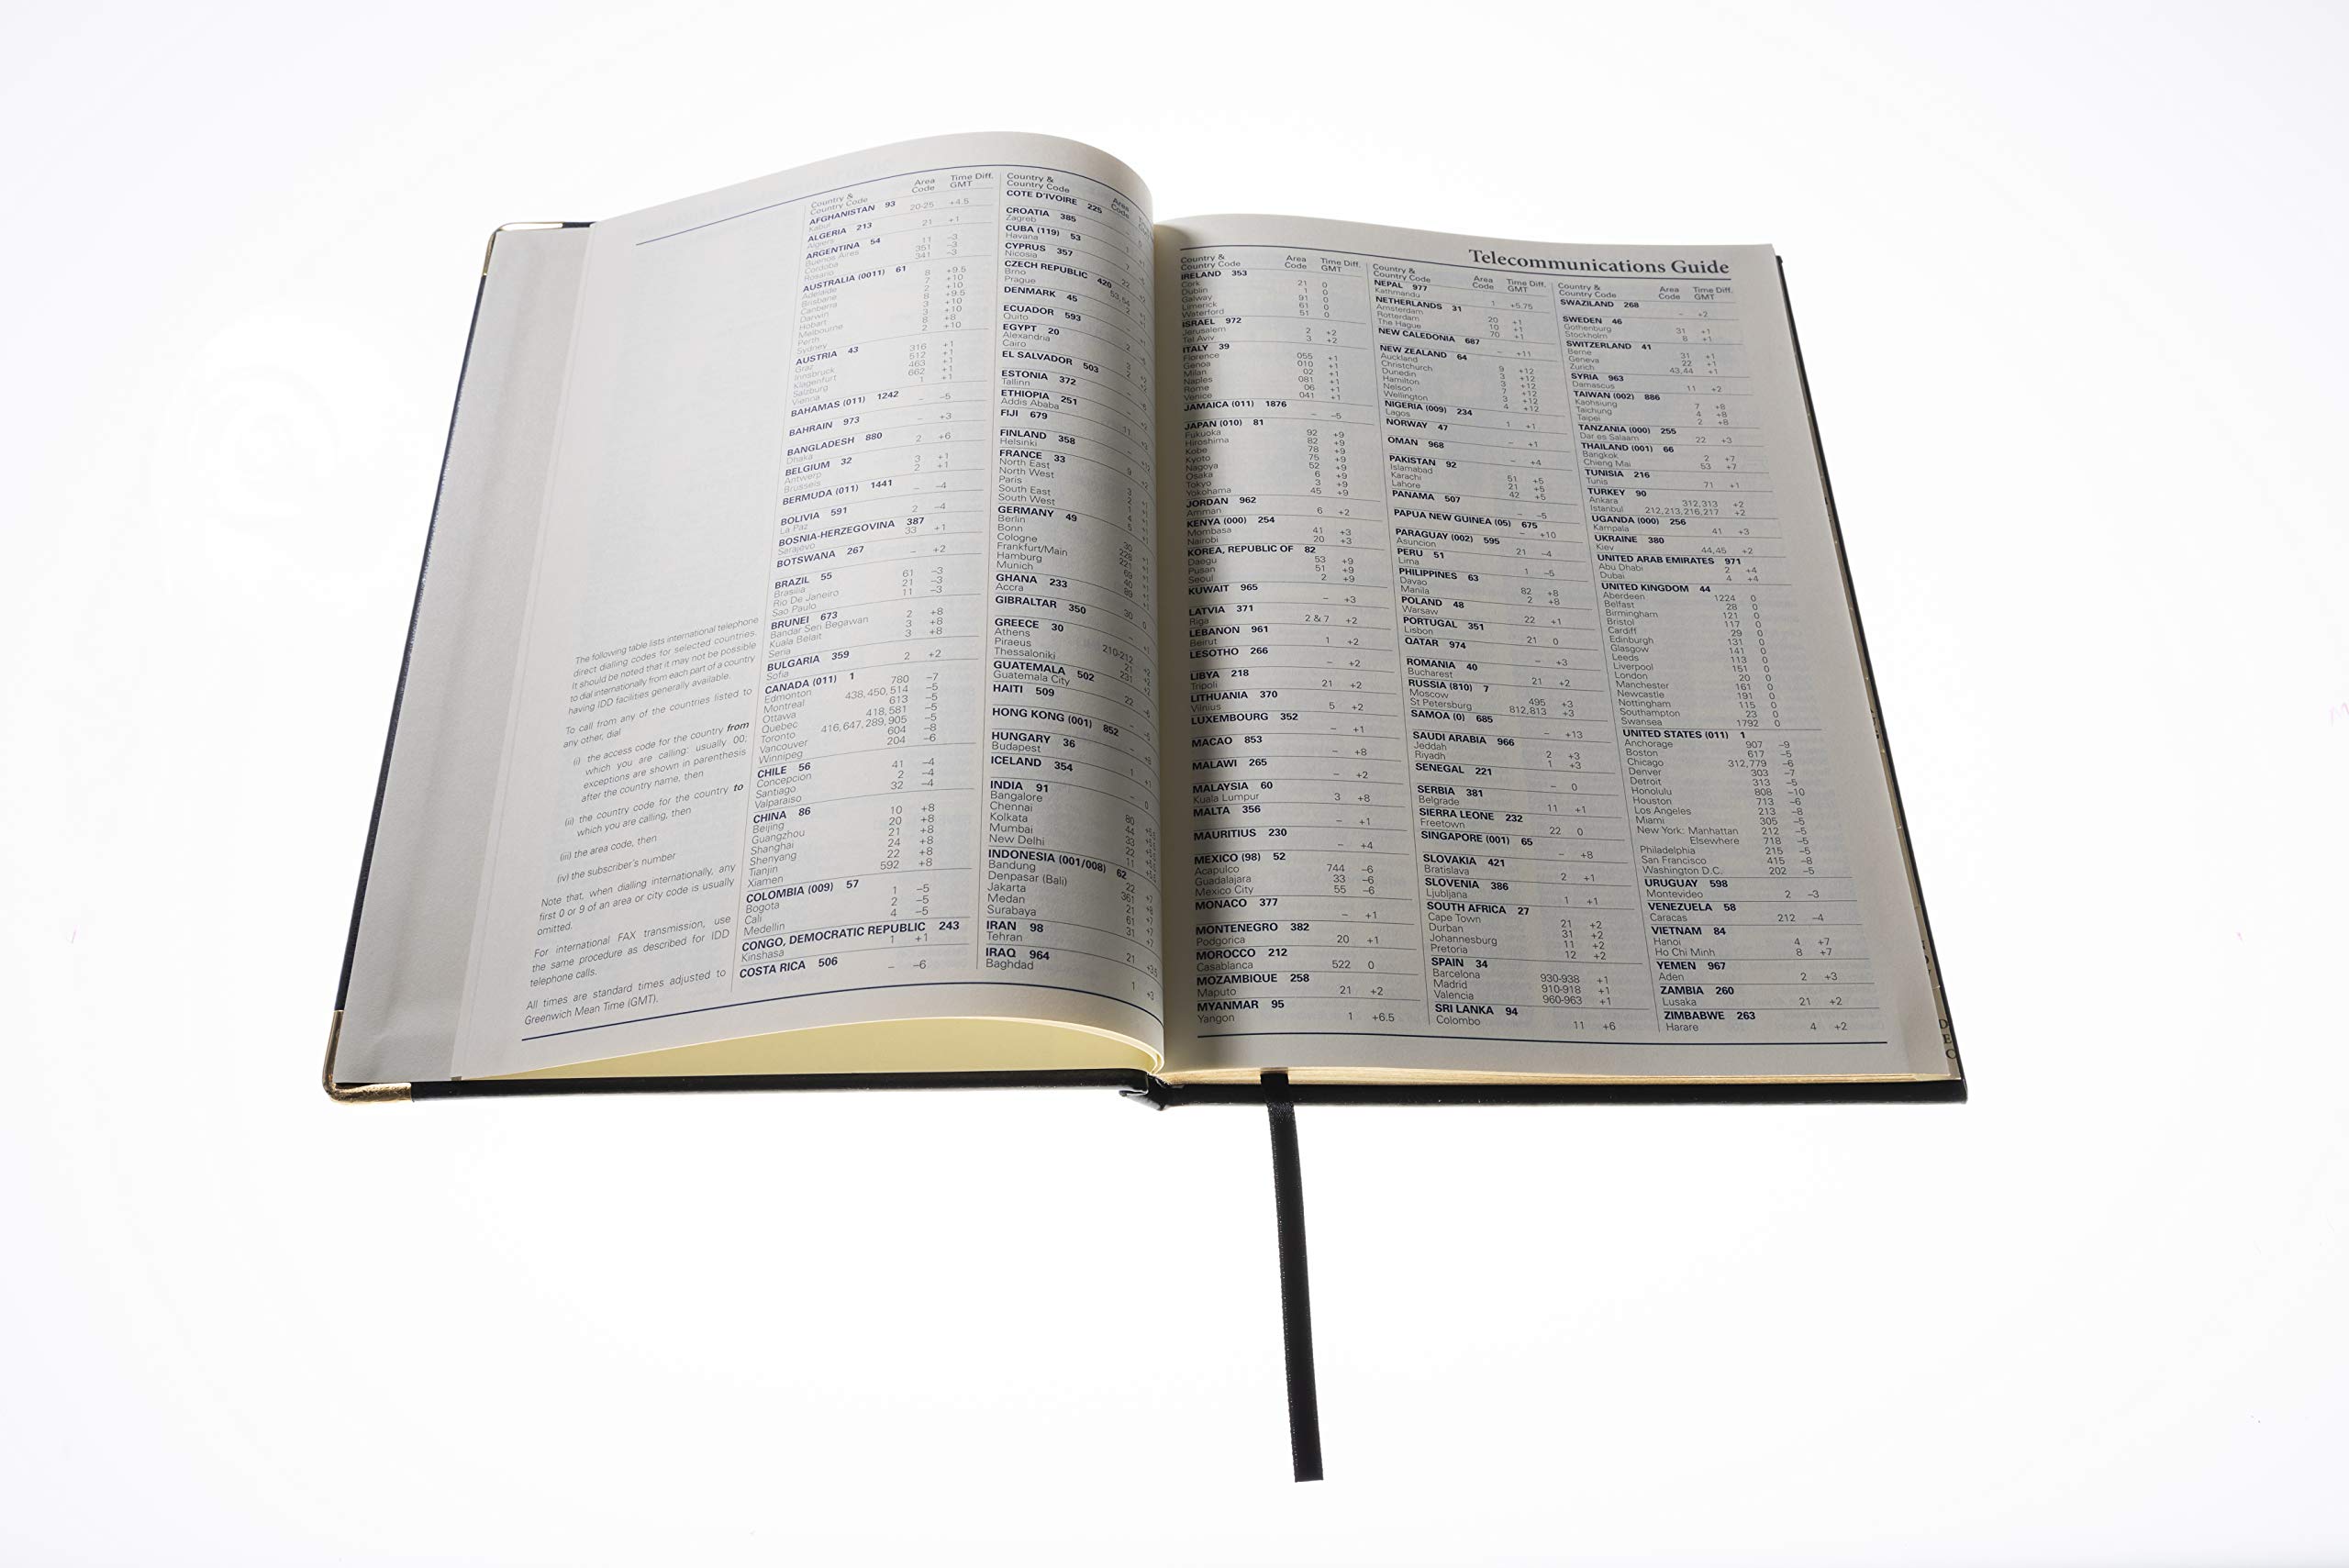 The following table lists international telephone
direct dialling codes for selected countries.
It should be noted that it may not be possible
to dial internationally from each part of a country
having IDD facilities generally available.
To call from any of the countries listed to
any other, dial
(i) the access code for the country from
which you are calling: usually 00;
exceptions are shown in parenthesis
after the country name, then
(ii) the country code for the country to
which you are calling, then
(iii) the area code, then
(iv) the subscriber's number
Note that, when dialling internationally, any
first 0 or 9 of an area or city code is usually
omitted.
For international FAX transmission, use
the same procedure as described for IDD
telephone calls.
All times are standard times adjusted to
Greenwich Mean Time (GMT).
Country & Area Time Diff.
Country Code Code GMT
AFGHANISTAN 93
Kabul 20-25 +4.5
ALGERIA 213
Algiers 21 +1
ARGENTINA 54
Buenos Aires 11 –3
Cordoba 351 –3
Rosario 341 –3
AUSTRALIA (0011) 61
Adelaide 8 +9.5
Brisbane 7 +10
Canberra 2 +10
Darwin 8 +9.5
Hobart 3 +10
Melbourne 3 +10
Perth 8 +8
Sydney 2 +10
AUSTRIA 43
Graz 316 +1
Innsbruck 512 +1
Klagenfurt 463 +1
Salzburg 662 +1
Vienna 1 +1
BAHAMAS (011) 1242
– –5
BAHRAIN 973
+3
BANGLADESH 880
Dhaka 2 +6
BELGIUM 32
Antwerp 3 +1
Brussels 2 +1
BERMUDA (011) 1441
– –4
BOLIVIA 591
La Paz 2 –4
BOSNIA-HERZEGOVINA 387
Sarajevo 33 +1
BOTSWANA 267
– +2
BRAZIL 55
Brasilia 61 –3
Rio De Janeiro 21 –3
Sao Paulo 11 –3
BRUNEI 673
Bandar Seri Begawan 2 +8
Kuala Belait 3 +8
Seria 3 +8
BULGARIA 359
Sofia 2 +2
CANADA (011) 1
Edmonton 780 –7
Montreal 438,450,514 –5
Ottawa 613 –5
Quebec 418,581 –5
Toronto 416,647,289,905 –5
Vancouver 604 –8
Winnipeg 204 –6
CHILE 56
Concepcion 41 –4
Santiago 2 –4
Valparaiso 32 –4
CHINA 86
Beijing 10 +8
Guangzhou 20 +8
Shanghai 21 +8
Shenyang 24 +8
Tianjin 22 +8
Xiamen 592 +8
COLOMBIA (009) 57
Bogota 1 –5
Cali 2 –5
Medellin 4 –5
CONGO, DEMOCRATIC REPUBLIC 243
Kinshasa 1 +1
COSTA RICA 506
– –6
Country & Area
Country Code Code
COTE D'IVOIRE 225
CROATIA 385
Zagreb
CUBA (119) 53
Havana
CYPRUS 357
Nicosia
CZECH REPUBLIC 420
Brno
Prague
DENMARK 45
ECUADOR 593
Quito
EGYPT 20
Alexandria
Cairo
EL SALVADOR 503
ESTONIA 372
Tallinn
ETHIOPIA 251
Addis Ababa
FIJI 679
FINLAND 358
Helsinki
FRANCE 33
North East
North West
Paris
South East
South West
GERMANY 49
Berlin 30
Bonn 228
Cologne 221
Frankfurt/Main 69
Hamburg 40
Munich 89
GHANA 233
Accra 30
GIBRALTAR 350
GREECE 30
Athens 210-212
Piraeus 21
Thessaloniki 231
GUATEMALA 502
Guatemala City 22
HAITI 509
HONG KONG (001) 852
HUNGARY 36
Budapest 1
ICELAND 354
INDIA 91
Bangalore 80
Chennai 44
Kolkata 33
Mumbai 22
New Delhi 11
INDONESIA (001/008) 62
Bandung 22
Denpasar (Bali) 361
Jakarta 21
Medan 61
Surabaya 31
IRAN 98
Tehran 21
IRAQ 964
Baghdad 1 +3
Telecommunications Guide
Country & Area Time Diff.
Country Code Code GMT
IRELAND 353
Cork 21 0
Dublin 1 0
Galway 91 0
Limerick 61 0
Waterford 51 0
ISRAEL 972
Jerusalem 2 +2
Tel Aviv 3 +2
ITALY 39
Florence 055 +1
Genoa 010 +1
Milan 02 +1
Naples 081 +1
Rome 06 +1
Venice 041 +1
JAMAICA (011) 1876
– –5
JAPAN (010) 81
Fukuoka 92 +9
Hiroshima 82 +9
Kobe 78 +9
Kyoto 75 +9
Nagoya 52 +9
Osaka 6 +9
Tokyo 3 +9
Yokohama 45 +9
JORDAN 962
Amman 6 +2
KENYA (000) 254
Mombasa 41 +3
Nairobi 20 +3
KOREA, REPUBLIC OF 82
Daegu 53 +9
Pusan 51 +9
Seoul 2 +9
KUWAIT 965
– +3
LATVIA 371
Riga 2 & 7 +2
LEBANON 961
Beirut 1 +2
LESOTHO 266
– +2
LIBYA 218
Tripoli 21 +2
LITHUANIA 370
Vilnius 5 +2
LUXEMBOURG 352
– +1
MACAO 853
– +8
MALAWI 265
– +2
MALAYSIA 60
Kuala Lumpur 3 +8
MALTA 356
– +1
MAURITIUS 230
– +4
MEXICO (98) 52
Acapulco 744 –6
Guadalajara 33 –6
Mexico City 55 –6
MONACO 377
– +1
MONTENEGRO 382
Podgorica 20 +1
MOROCCO 212
Casablanca 522 0
MOZAMBIQUE 258
Maputo 21 +2
MYANMAR 95
Yangon 1 +6.5
Country & Area Time Diff.
Country Code Code GMT
NEPAL 977
Kathmandu 1 +5.75
NETHERLANDS 31
Amsterdam 20 +1
Rotterdam 10 +1
The Hague 70 +1
NEW CALEDONIA 687
– +11
NEW ZEALAND 64
Auckland 9 +12
Christchurch 3 +12
Dunedin 3 +12
Hamilton 7 +12
Nelson 3 +12
Wellington 4 +12
NIGERIA (009) 234
Lagos 1 +1
NORWAY 47
– +1
OMAN 968
– +4
PAKISTAN 92
Islamabad 51 +5
Karachi 21 +5
Lahore 42 +5
PANAMA 507
– –5
PAPUA NEW GUINEA (05) 675
– +10
PARAGUAY (002) 595
Asuncion 21 –4
PERU 51
Lima 1 –5
PHILIPPINES 63
Davao 82 +8
Manila 2 +8
POLAND 48
Warsaw 22 +1
PORTUGAL 351
Lisbon 21 0
QATAR 974
– +3
ROMANIA 40
Bucharest 21 +2
RUSSIA (810) 7
Moscow 495 +3
St Petersburg 812,813 +3
SAMOA (0) 685
– +13
SAUDI ARABIA 966
Jeddah 2 +3
Riyadh 1 +3
SENEGAL 221
– 0
SERBIA 381
Belgrade 11 +1
SIERRA LEONE 232
Freetown 22 0
SINGAPORE (001) 65
– +8
SLOVAKIA 421
Bratislava 2 +1
SLOVENIA 386
Ljubljana 1 +1
SOUTH AFRICA 27
Cape Town 21 +2
Durban 31 +2
Johannesburg 11 +2
Pretoria 12 +2
SPAIN 34
Barcelona 930-938 +1
Madrid 910-918 +1
Valencia 960-963 +1
SRI LANKA 94
Colombo 11 +6
Country & Area Time Diff.
Country Code Code GMT
SWAZILAND 268
– +2
SWEDEN 46
Gothenburg 31 +1
Stockholm 8 +1
SWITZERLAND 41
Berne 31 +1
Geneva 22 +1
Zurich 43,44 +1
SYRIA 963
Damascus 11 +2
TAIWAN (002) 886
Kaohsiung 7 +8
Taichung 4 +8
Taipei 2 +8
TANZANIA (000) 255
Dar es Salaam 22 +3
THAILAND (001) 66
Bangkok 2 +7
Chieng Mai 53 +7
TUNISIA 216
Tunis 71 +1
TURKEY 90
Ankara 312,313 +2
Istanbul 212,213,216,217 +2
UGANDA (000) 256
Kampala 41 +3
UKRAINE 380
Kiev 44,45 +2
UNITED ARAB EMIRATES 971
Abu Dhabi 2 +4
Dubai 4 +4
UNITED KINGDOM 44
Aberdeen 1224 0
Belfast 28 0
Birmingham 121 0
Bristol 117 0
Cardiff 29 0
Edinburgh 131 0
Glasgow 141 0
Leeds 113 0
Liverpool 151 0
London 20 0
Manchester 161 0
Newcastle 191 0
Nottingham 115 0
Southampton 23 0
Swansea 1792 0
UNITED STATES (011) 1
Anchorage 907 –9
Boston 617 –5
Chicago 312,779 –6
Denver 303 –7
Detroit 313 –5
Honolulu 808 –10
Houston 713 –6
Los Angeles 213 –8
Miami 305 –5
New York: Manhattan 212 –5
Elsewhere 718 –5
Philadelphia 215 –5
San Francisco 415 –8
Washington D.C. 202 –5
URUGUAY 598
Montevideo 2 –3
VENEZUELA 58
Caracas 212 –4
VIETNAM 84
Hanoi 4 +7
Ho Chi Minh 8 +7
YEMEN 967
Aden 2 +3
ZAMBIA 260
Lusaka 21 +2
ZIMBABWE 263
Harare 4 +2